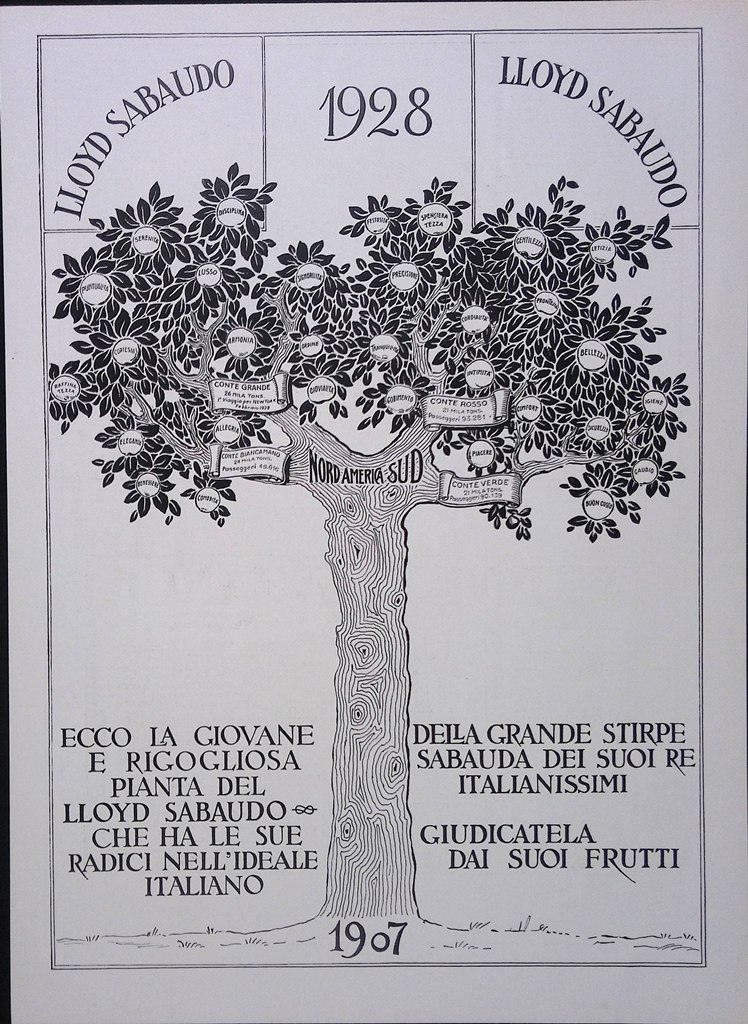 LLOYD SABAUDO
1928
LLOYD SABAUDO
DISCIPLINA
FESTOSITÀ
SPENSIERA
TEZZA
SERENITÀ
GENTILEZZA
LETIZIA
PUNTUALITÀ
LUSSO
SIGNORILITÀ
PRECISIONE
PRONTEZZA
CORDIALITÀ
CORTESIA
ARMONIA
ORDINE
TRANQUILLITÀ
BELLEZZA
RAFFINA
TEZZA
GIOVIALITÀ
GODIMENTO
INTIMITÀ
COMFORT
IGIENE
CONTE GRANDE
26 MILA TONS.
1° Viaggio per NEW YORK
Febbraio 1928
CONTE ROSSO
21 MILA TONS.
Passeggeri 93.281
ELEGANZA
ALLEGRIA
SICUREZZA
CONTE BIANCAMANO
24 MILA TONS.
Passeggeri 49.610
NORD AMERICA SUD
PIACERE
GAUDIO
BENESSERE
COMODITÀ
CONTE VERDE
21 MILA TONS.
Passeggeri 90.139
BUON GUSTO
ECCO LA GIOVANE
E RIGOGLIOSA
PIANTA DEL
LLOYD SABAUDO
CHE HA LE SUE
RADICI NELL'IDEALE
ITALIANO
DELLA GRANDE STIRPE
SABAUDA DEI SUOI RE
ITALIANISSIMI
GIUDICATELA
DAI SUOI FRUTTI
1907